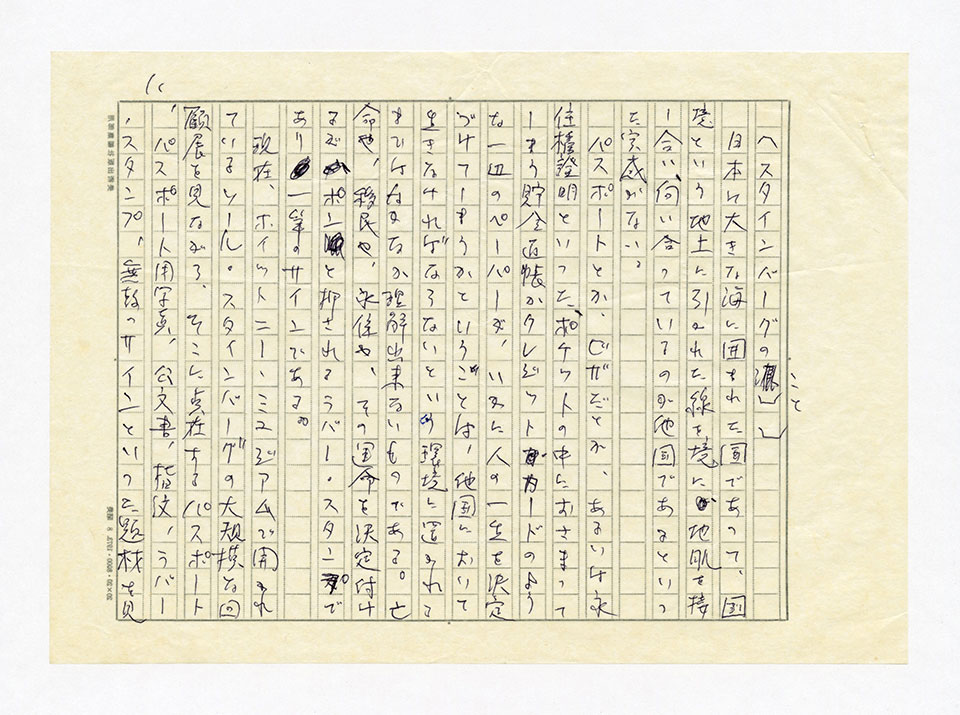 スタインバーグの
こと
日本は大きな海に囲まれた国であって、国
境という地上に引かれた線を境に地肌を接
し合い、向い合っているのが他国であるといっ
た実感がない。
パスポートとか、ビザだとか、あるいは永
住権証明といった、ポケットの中におさまって
しまう貯金通帳かクレジットカードのよう
な一皿のペーパーが、いかに人の一生を決定
づけてしまうかということは、他国において
生きなければならないという環境に置かれる
まではなかなか理解出来ないものである。亡
命や、移民や、永住や、その運命を決定付け
るのがポンと押されるラバー・スタンプで
あり一筆のサインである。
現在、ホイットニー・ミュジアムで開かれ
ているソール・スタインバーグの大規模な回
顧展を見ながら、そこに点在するパスポート
、パスポート用写真、公文書、指紋、ラバー
・スタンプ、無数のサインといった題材を見